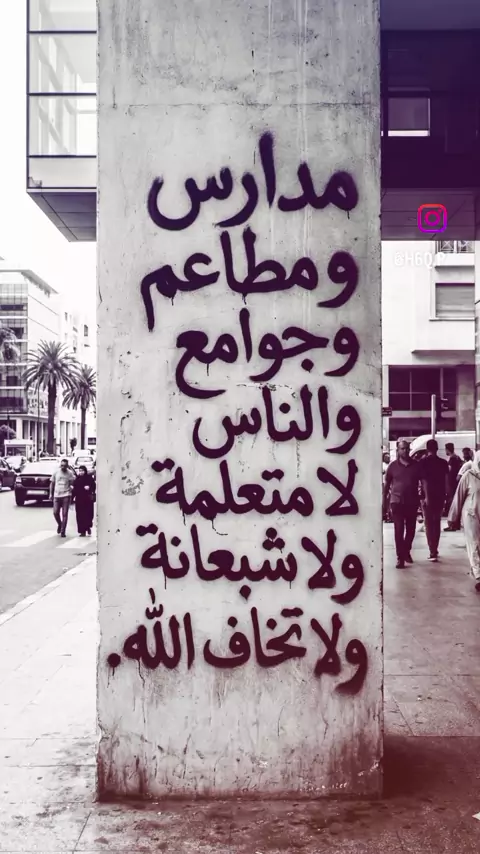 مدارس
ومطاعم
وجوامع
والناس
لا متعلمة
ولا شبعانة
ولا تخاف الله.